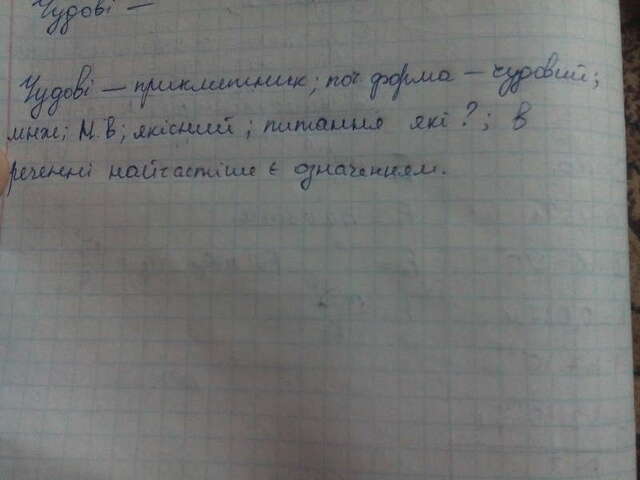 Чудові —
Чудові — прикметник; поч форма — чудовий;
множ; Н. В; якісний; питання які?; в
реченні найчастіше є означенням.